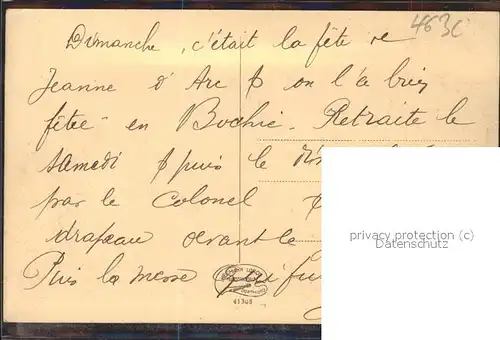 463C
Dimanche, c'était la fête de
Jeanne d'Arc & on l'a bien
fêtée en Bochie. Retraite le
samedi & puis le
par le Colonel
drapeau devant le
Puis la messe
41308
privacy protection (c)
Datenschutz